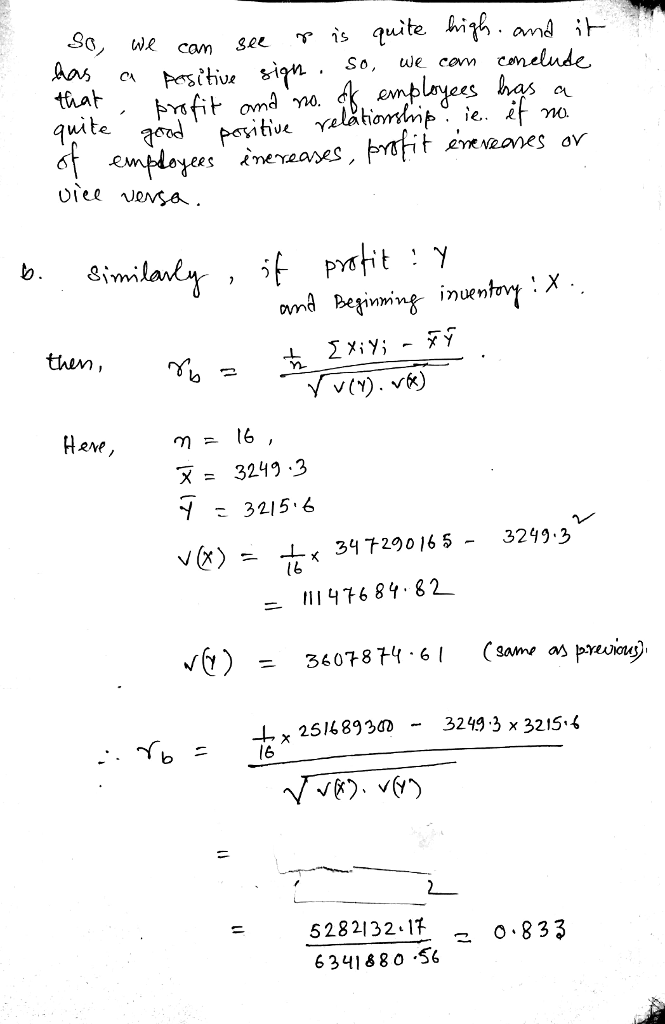 So, we can see r is quite high. and it
has a positive sign. so, we can conclude
that, profit and no. of employees has a
quite good positive relationship. ie.. if no.
of employees increases, profit increases or
vice versa.
b. Similarly, if profit : Y
and Beginning inventory : X..
then, r_b = (1/n Σ XiYi - X̄Ȳ) / √(V(Y). V(X)) .
Here, n = 16,
X̄ = 3249.3
Ȳ = 3215.6
V(X) = 1/16 × 347290165 - 3249.3²
= 11147684.82
V(Y) = 3607874.61 (same as previous).
∴ r_b = (1/16 × 251689300 - 3249.3 × 3215.6) / √(V(X). V(Y))
=
= 5282132.17 / 6341880.56 = 0.833